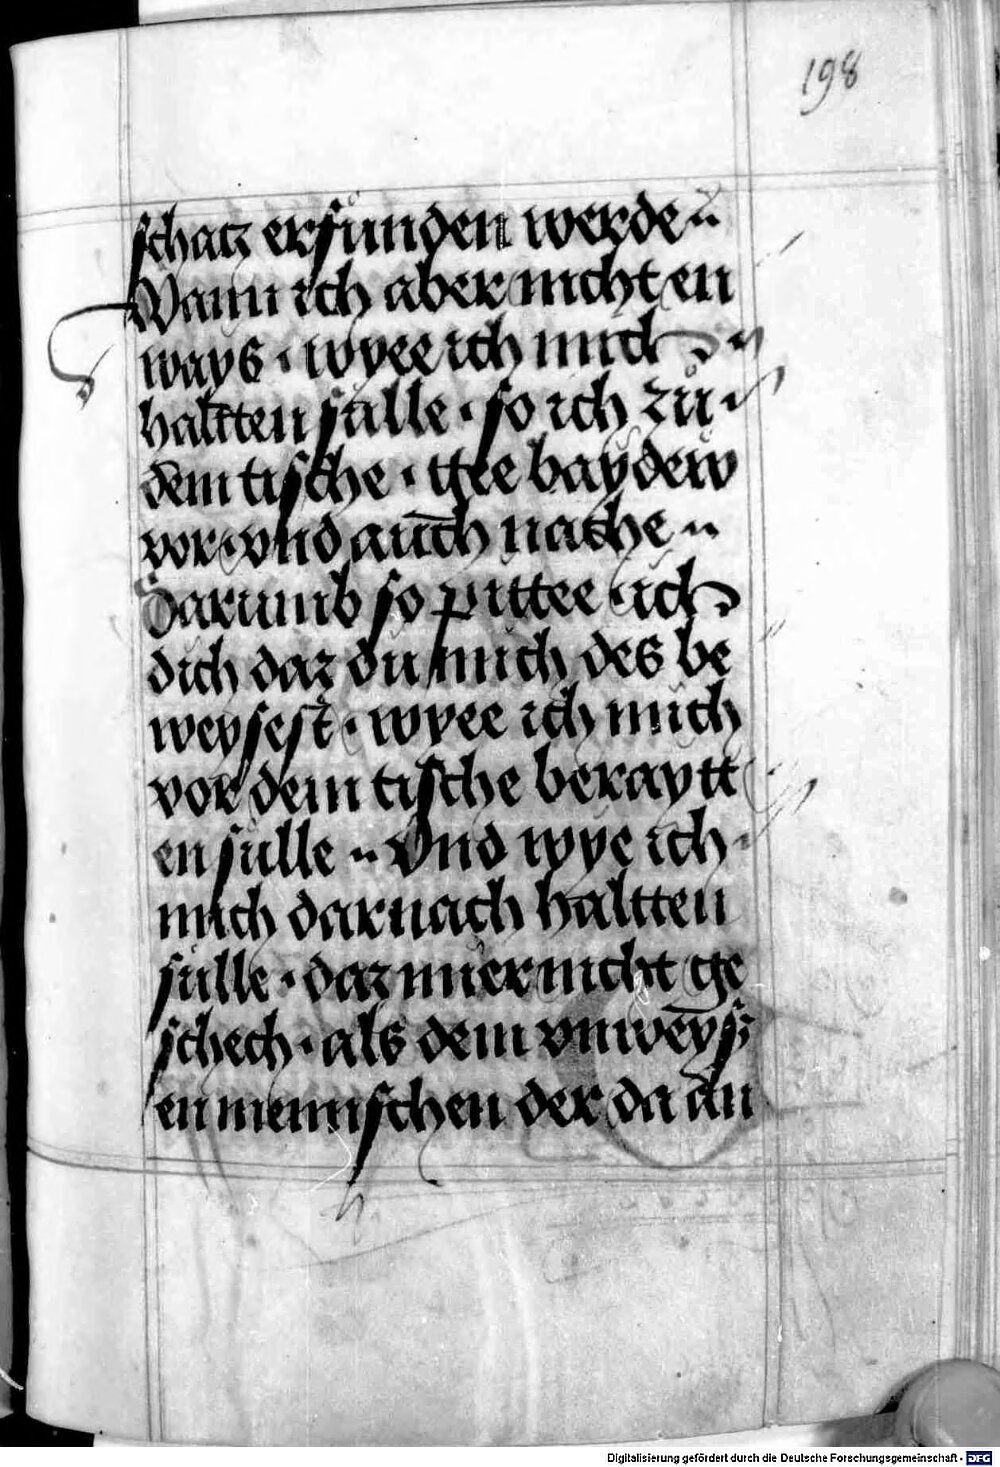 198
schatz erfunden werden
Wann ich aber nicht en
ways · wyee ich mich
haltten sülle · so ich zü
dem tische · gee baydew
vor vnd auch nache
Darumb so pittee ich
dich daz du mich des be
weysest · wyee ich mich
vor dem tische beraytt
en sülle · Vnd wye ich
mich darnach haltten
sülle · daz mir nicht ge
schech · als dem vnweys
en mennschen der da an
Digitalisierung gefördert durch die Deutsche Forschungsgemeinschaft - DFG